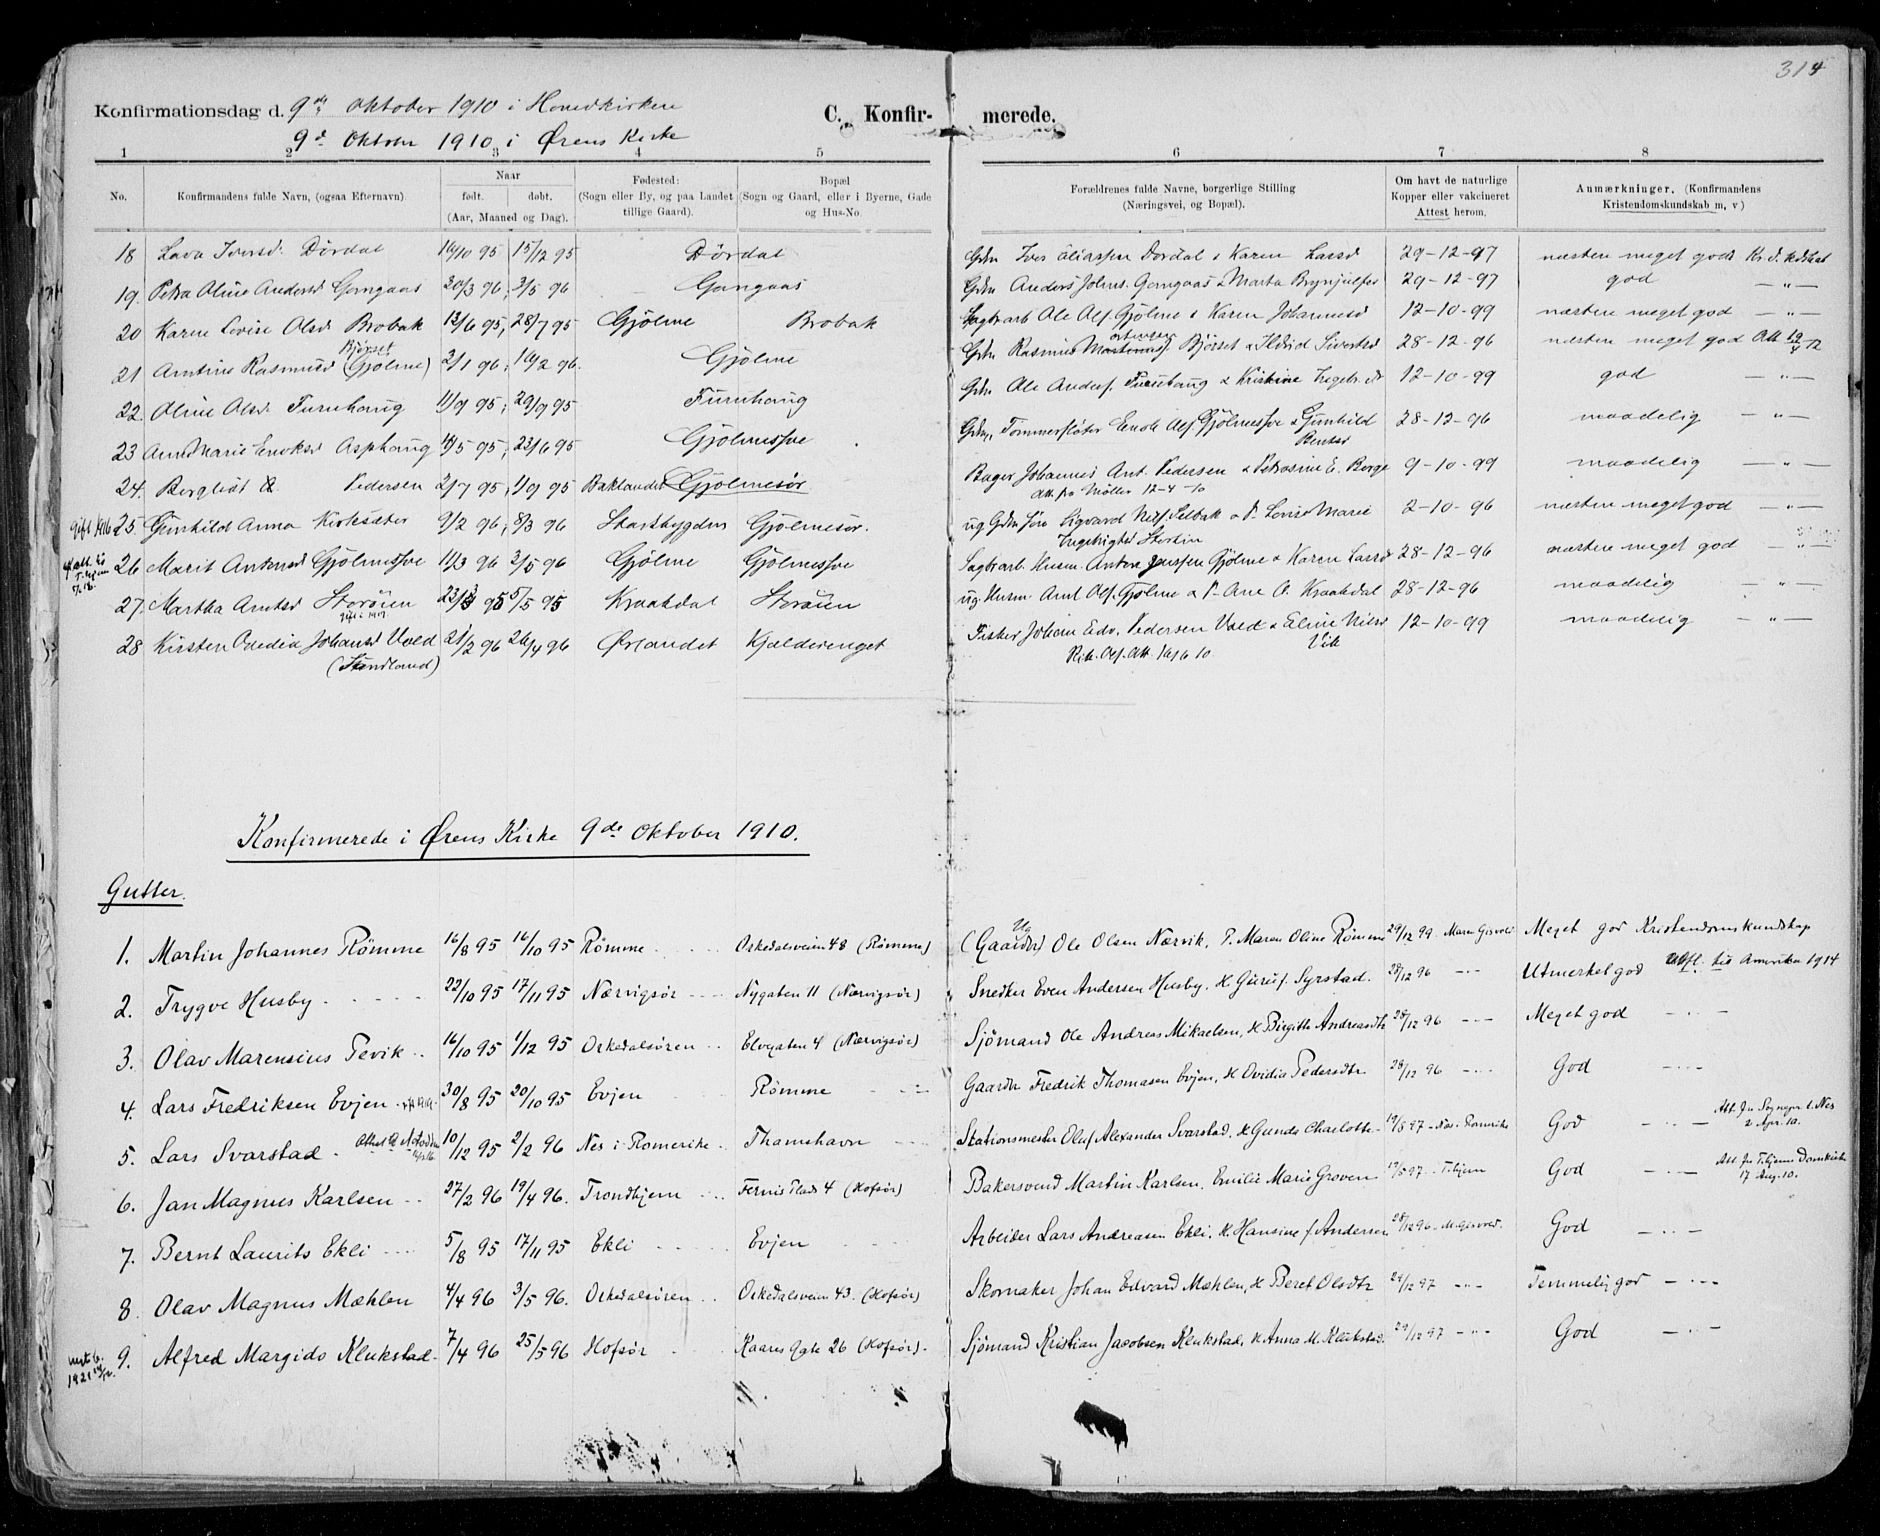 314
Konfirmationsdag d. 9de Oktober 1910 i Hovedkirken
9de Oktober 1910 i Ørens Kirke
C. Konfirmerede.
1 2 3 4 5 6 7 8
No. Konfirmandens fulde Navn, (ogsaa Efternavn) Naar født. døbt. (Aar, Maaned og Dag). Fødested: (Sogn eller By, og paa Landet tillige Gaard). Bopæl (Sogn og Gaard, eller i Byerne, Gade og Hus-No. Forældrenes fulde Navne, borgerlige Stilling (Næringsvei, og Bopæl). Om havt de naturlige Kopper eller vakcineret Attest herom. Anmærkninger, (Konfirmandens Kristendomskundskab m, v)
18 Iversd. Dørdal 16/10 95 15/12 95 Dørdal Gdm Iver Eliassen Dørdal & Karen Larsd 29-12-97 næsten meget god
19. Petra Oline Andersd Gangaas 20/3 96; 3/5 96 Gangaas Gdm Anders Johns. Gangaas & Marta Brynjulfs 29-12-97 god — „ —
20 Karen Lovise Olsd Brobak 13/6 95; 28/7 95 Gjölme Brobak Sagbrarb Ole Ols. Gjölme & Karen Johannesd 12-10-99 næsten meget god — „ —
21 Amtine Rasmusd Bjørset (Gjölme) 2/1 96; 16/2 96. Gjölme Gdm Rasmus Bjørset & Ildrid Sivertsd 28-12-96 næsten meget god Att 12/4 12
22. Oline Olsd Furuhaug 11/9 95; 29/9 95 Furuhaug Gdm Ole Anders. Furuhaug & Kristine Ingebr. d 12-10-99 god — „ —
23 Anne Marie Enoksd Asphaug 14/5 95; 23/6 95 Gjölmesfve Gdm, Tömmerfløter Enok Ols. Gjölmesfve & Gunhild Bentsd 28-12-96 maadelig — „ —
24. Bergliot Pedersen 2/7 95; 1/9 95 Baklandet Gjölmesör Bager Johannes Ant. Pedersen & Petrosine E. Berge 9-10-99 maadelig — „ —
Att. fra Möller 12-4-10
gift 1916 25 Gunhild Anna Kirkesæter 9/2 96; 8/3 96 Stadsbygden Gjölmesör. ug Gdm Sigvard Nils. Selbak & P. Lovise Marie Ingebrigtsd 2-10-96 næsten meget god — „ —
26 Marit Antonsd Gjölmesfve 11/3 96 3/5 96 Gjölme Gjölmesfve Sagbrarb. Husm. Anton Jenssen Gjölme & Karen Larsd 28-12-96 næsten meget god — „ —
27. Martha Arntsd Storöien 5/5 95 Kraakdal Storöien ug. Husm Arnt Ols. Gjölme & P. Ane O. Kraakdal 28-12-96 maadelig — „ —
28 Kirsten Ovedia Johansd Uold 21/2 96 26/4 96 Ørlandet Kjælderenget Fisker Johan Edv. Pedersen Vold & Eline Nilsd Vik 12-10-99 maadelig — „ —
(Strandland) Att. 16/6 10.
Konfirmerede i Ørens Kirke 9de Oktober 1910.
Gutter.
1. Martin Johannes Römme 16/8 95 16/10 95 Römme Orkedalsveien 48 (Römme) Ug (Gaardbr) Ole Olsen Nærvik, P. Maren Oline Römme 29/12 99 Meget god Kristendomskundskap
2. Trygve Husby 22/10 95 17/11 95 Nærvigsör Nygaten 11 (Nærvigsör) Snedker Even Andersen Husby. H. Guru f. Syrstad. 28/12 96 -"- Utmerket god Utfl. til Amerika 1914
3. Olav Marensius Tevik 16/10 95 1/12 95 Orkedalsören Elvegaten 4 (Nærvigsör) Sjömand Ole Andreas Mikaelsen, H Birgitte Andreasdtr 28/12 96 -"- Meget god — „ —
4. Lars Fredriksen Evjen 30/8 95 20/10 95 Evjen Römme Gaardbr Fredrik Thomasen Evjen, H Ovidia Pedersdtr 28/12 96 -"- God — „ —
5. Lars Svarstad 10/12 95 2/2 96 Nes i Romerike Thamshavn Stationsmester Oluf Alexander Svarstad, H Gunda Charlotte 19/8 97 - Nes. Romerike God — „ — Att. fra Sognepr. i. Nes 2 Apr. 10.
6. Jan Magnus Karlsen 27/2 96 19/4 96. Trondhjem Fernis Plads 4 (Hofsör) Bakersvend Martin Karlsen, Emilie Marie Groven 17/5 97 - T.hjem God — „ — Att. fra T.hjems Domkirke 17 Aug. 10.
7. Bernt Laurits Ekli 5/8 95 17/11 95 Ekli Evjen Arbeider Lars Andreasen Ekli, H. Hansine f. Andersen 28/12 96 - M. Gisvold. God — „ —
8. Olav Magnus Mæhlen 4/4 96 3/5 96. Orkedalsören Orkedalsveien 43. (Hofsör) Skomaker Johan Edvard Mæhlen, H Beret Olsdtr 29/12 97 -"- Temmelig god — „ —
9. Alfred Margido Klukstad 7/4 96 25/5 96 Hofsör Kaares Gate 26 (Hofsör). Sjömand Kristian Jacobsen Klukstad, H Anna M. Klukstad. 29/12 97 -"- God — „ —